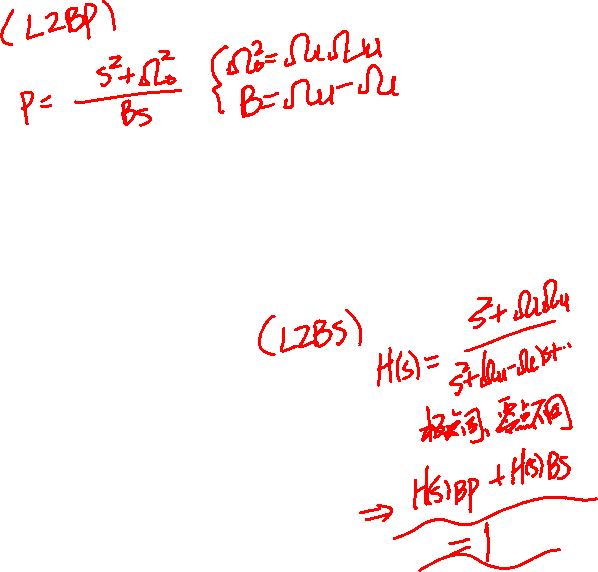 (L2BP)
P = (s²+Ω₀²)/(Bs) { Ω₀² = ΩₗΩᵤ
B = Ωᵤ - Ωₗ
(L2BS)
H(s) = (s² + ΩₗΩᵤ)/(s² + (Ωᵤ - Ωₗ)s + ...)
极点同、零点不同
⇒ H(s)BP + H(s)BS
= 1